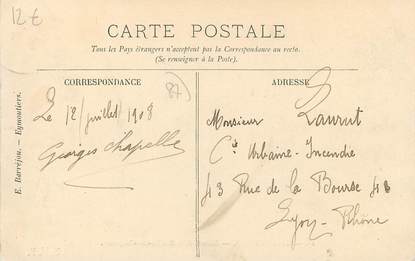 12 €
CARTE POSTALE
Tous les Pays étrangers n'acceptent pas la Correspondance au recto.
(Se renseigner à la Poste).
CORRESPONDANCE
Le 12 juillet 1908
Georges Chapelle
87
E. Barréjou. — Eymoutiers.
ADRESSE
Monsieur Laurut
Cie Urbaine - Incendie
43 Rue de la Bourse 43
Lyon - Rhône